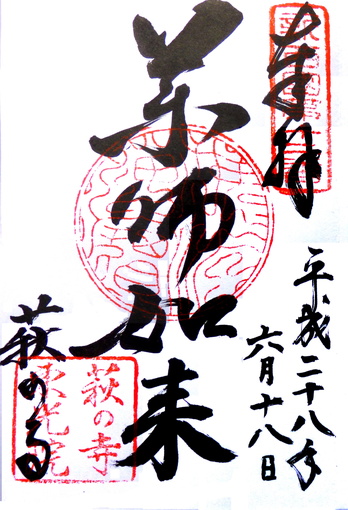 奉拝
平成二十八年
六月十八日
薬師如来
萩の寺
萩の寺
東光院